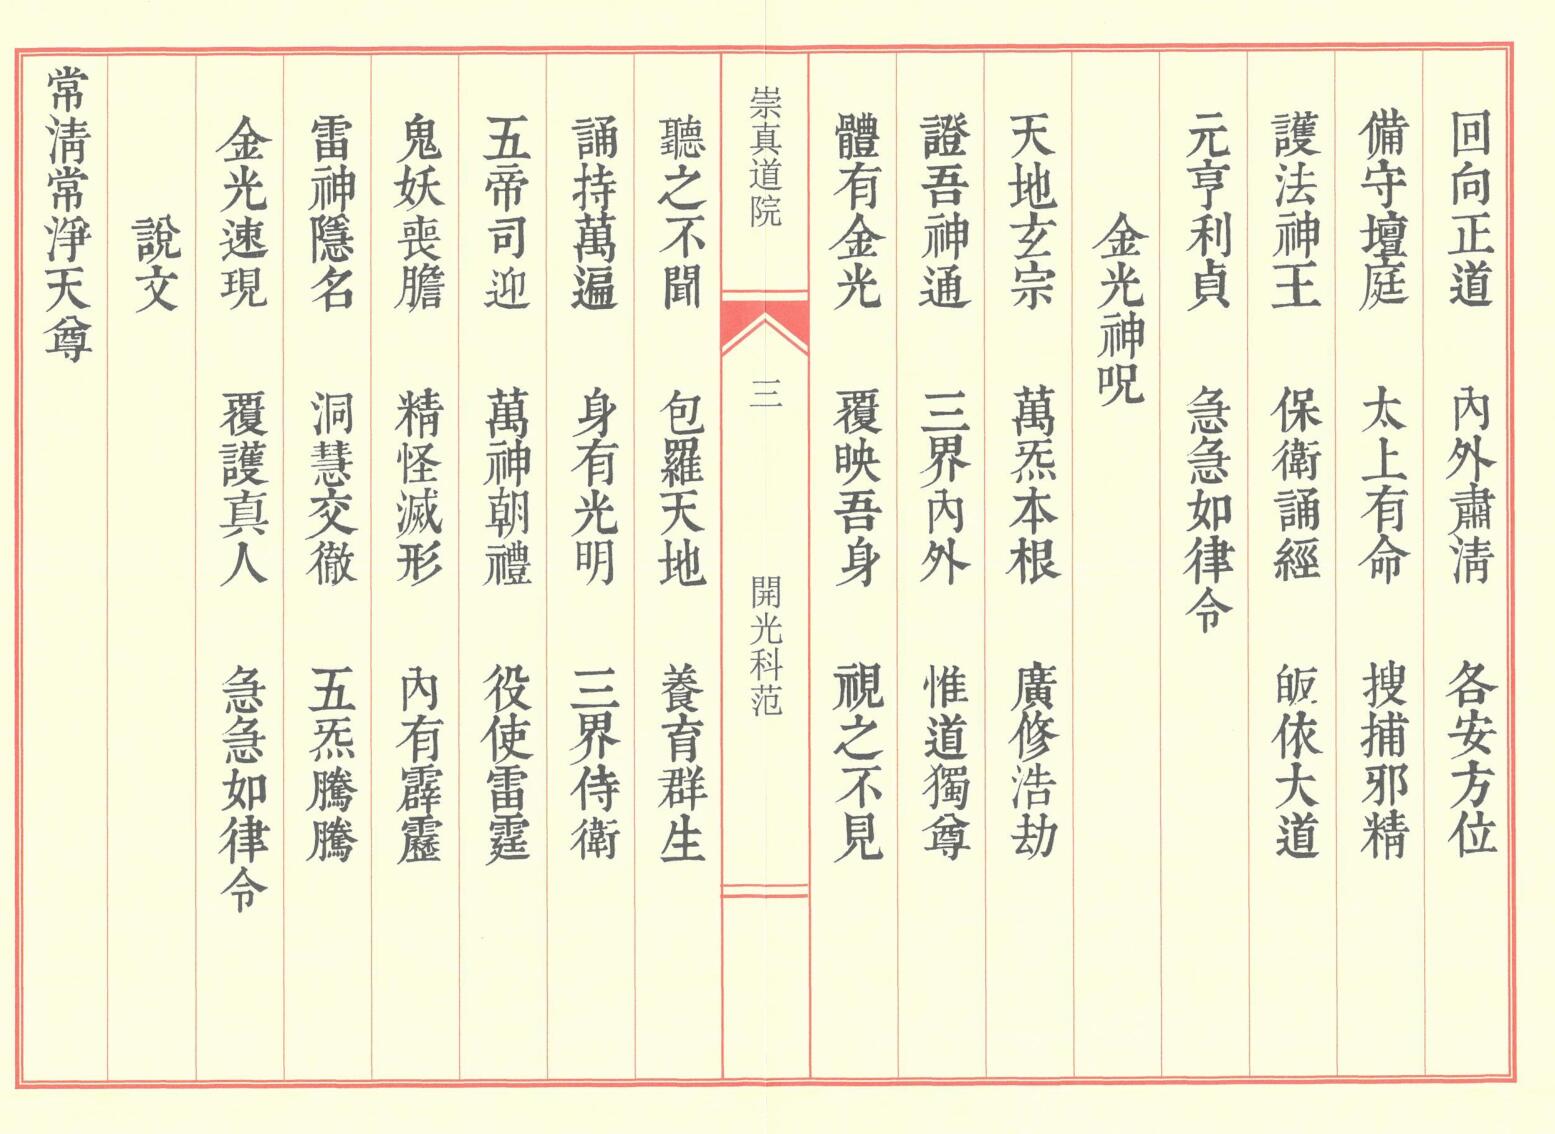 回向正道　內外肅清　各安方位
備守壇庭　太上有命　搜捕邪精
護法神王　保衛誦經　皈依大道
元亨利貞　急急如律令
金光神呪
天地玄宗　萬炁本根　廣修浩劫
證吾神通　三界內外　惟道獨尊
體有金光　覆映吾身　視之不見
崇真道院　三　開光科范
聽之不聞　包羅天地　養育群生
誦持萬遍　身有光明　三界侍衛
五帝司迎　萬神朝禮　役使雷霆
鬼妖喪膽　精怪滅形　內有霹靂
雷神隱名　洞慧交徹　五炁騰騰
金光速現　覆護真人　急急如律令
說文
常淸常淨天尊